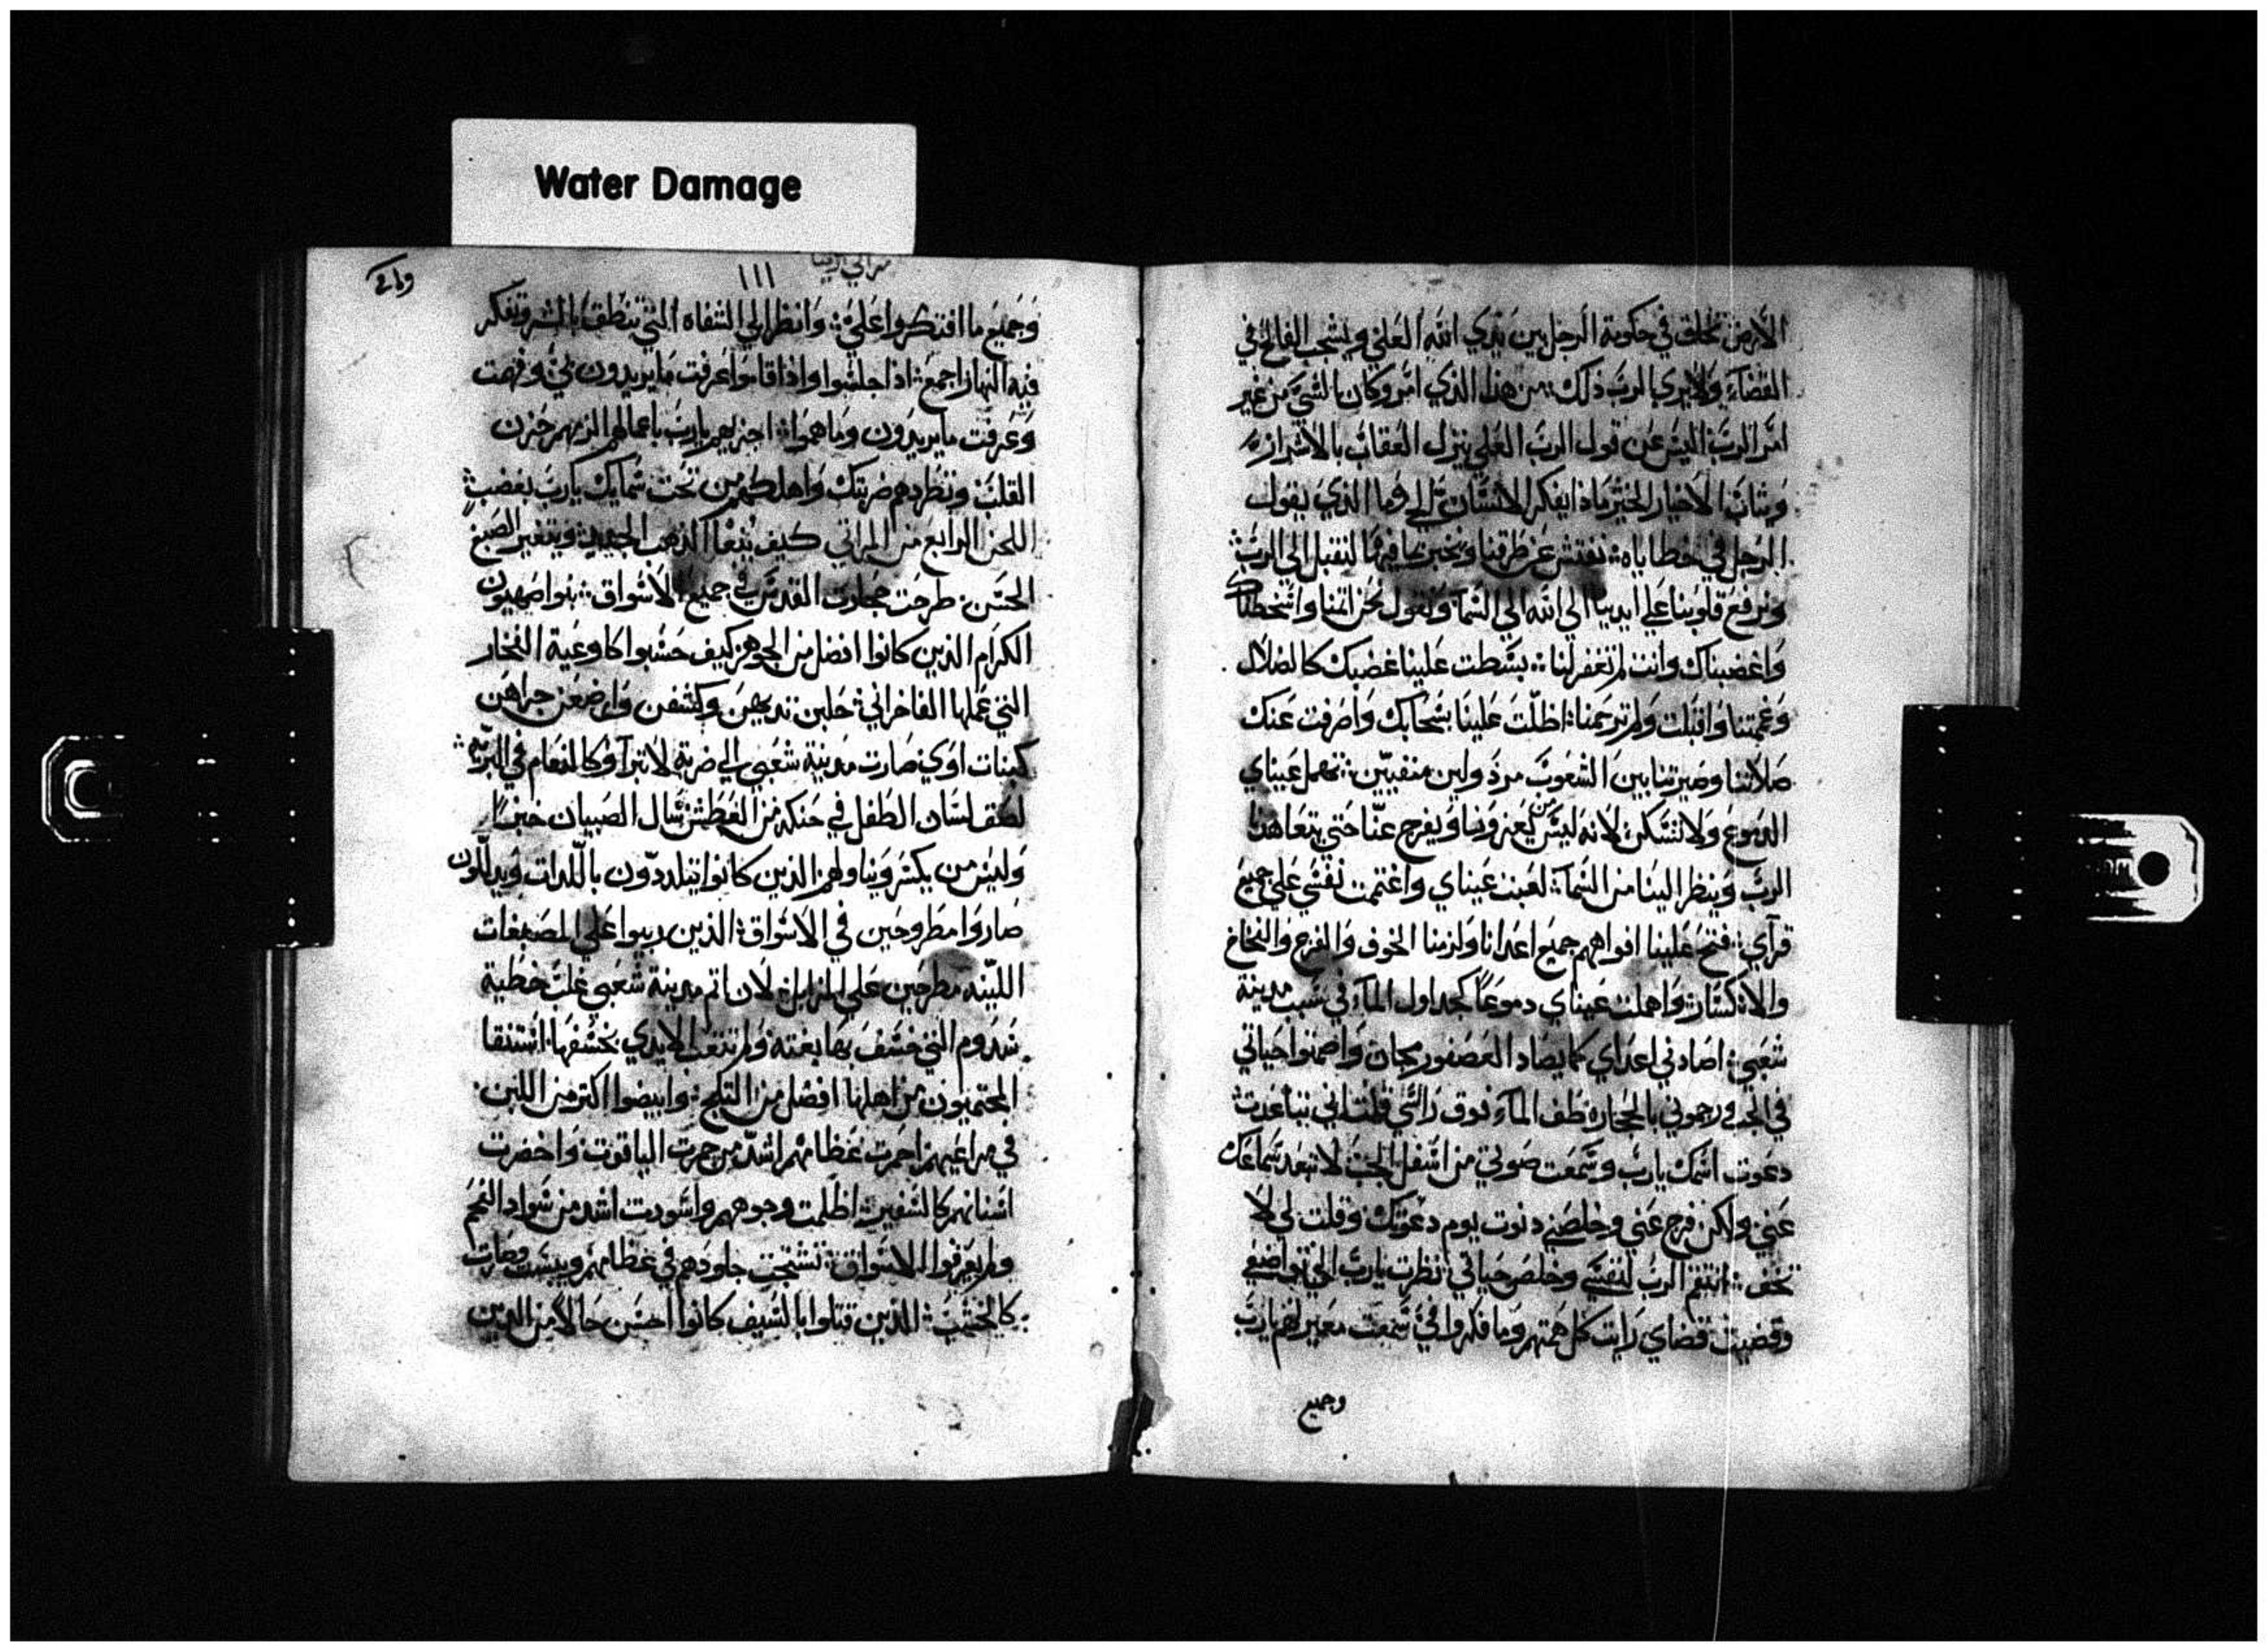 Water Damage
الارض تخلق في حكومة الرجل بين يدي الله العلي ويشجب الفالح في
القضاء ولا يري الرب ذلك من هذا الذي امر وكان بالشي من غير
امر الرب اليس عن قول الرب العلي ينزل العقاب بالاشرار
ويثاب الاخيار الخير ماذا يفكر الانسان الحي وما الذي يقول
الرجل في خطاياه نفتش عن طرقنا ونخبر ما فيها لنقبل الي الرب
ونرفع قلوبنا علي ايدينا الي الله الي السما ونقول نحن اثمنا واسخطناك
واغضبناك وانت لم تغفر لنا بسطت علينا غضبك كالضلال
وغممتنا واقبلت ولم ترحمنا اظللت علينا بسحابك واصرفت عنك
صلاتنا وصيرتنا بين الشعوب مرذولين منفيين تهمل عيناي
الدموع ولا تسكن لانه ليس من يعزونا ويفرج عنا حتي يتعاهدنا
الرب وينظر الينا من السما لعبت عيناي واغتمت نفسي علي جميع
قرآي فتح علينا افواههم جميع اعدانا ولزمنا الخوف والفزع والنخاخ
والانكسار واهملت عيناي دموعا كجداول الماء في سبب مدينة
شعبي اصادني اعداي كما يصاد العصفور مجان واصمتوا حياتي
في الجب ورجموني بالحجارة طف الماء فوق راسي قلت اني تباعدت
دعوت اسمك يارب وسمعت صوتي من اسفل الجب لا تبعد سماعك
عني ولكن فرج عني وخلصني دنوت يوم دعوتك وقلت لي لا
تخف انتقم الرب لنفسي وخلص حياتي نظرت يارب الي تواضعي
وقضيت قضاي رايت كل همتهم وما فكروا في سمعت معيرتهم يارب
وجميع
١١١
مراثي ارميا
وجميع ما افتكروا علي وانظر الي الشفاه التي تنطق بالشر وتفكر
فيه النهار اجمع اذا جلسوا واذا قاموا عرفت ما يريدون بي وفهمت
وعرفت ما يريدون وما هموا اجزيهم يارب باعمالهم الزمهم حزن
القلب وتطردهم ضربتك واهلكهم من تحت سمايك يارب بغضب
اللحن الرابع من المراثي كيف يدعا الذهب الجيد ويتغير الصبغ
الحسن طرحت حجارت القدس في جميع الاسواق بنوا صهيون
الكرام الذين كانوا افضل من الجوهر كيف حسبوا كاوعية الفخار
التي عملها الفاخراني حلبن ثديهن وكشفن وارضعن جراهن
كبنات اوي صارت مدينة شعبي الي ضربة لا تبرا وكالنعام في البر
لصق لسان الطفل في حنكه من العطش سال الصبيان خبزا
وليس من يكسر ويناولهم الذين كانوا يتلددون باللدات ويدللون
صاروا مطروحين في الاسواق الذين ربيوا علي المصبغات
اللينه مطرحين علي المزابل لان اثم مدينة شعبي غلب خطية
سدوم التي خسف بها بغته ولم تتعب الايدي بخسفها استنقا
المحتميون من اهلها افضل من الثلج وابيضوا اكتر من اللبن
في مراعيهم احمرت عظامهم اشد من حمرت الياقوت واخضرت
اسنانهم كالسفير اظلمت وجوههم واسودت اشد من سواد الفحم
ولم يعرفوا الاسواق تشنجت جلودهم في عظامهم ويبست وصارت
كالخشب الذين قتلوا بالسيف كانوا احسن حالا من الذين